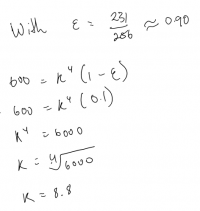 With ε = 231/256 ≈ 0.90
600 = K⁴ (1 - ε)
600 = K⁴ (0.1)
K⁴ = 6000
K = ∜6000
K = 8.8